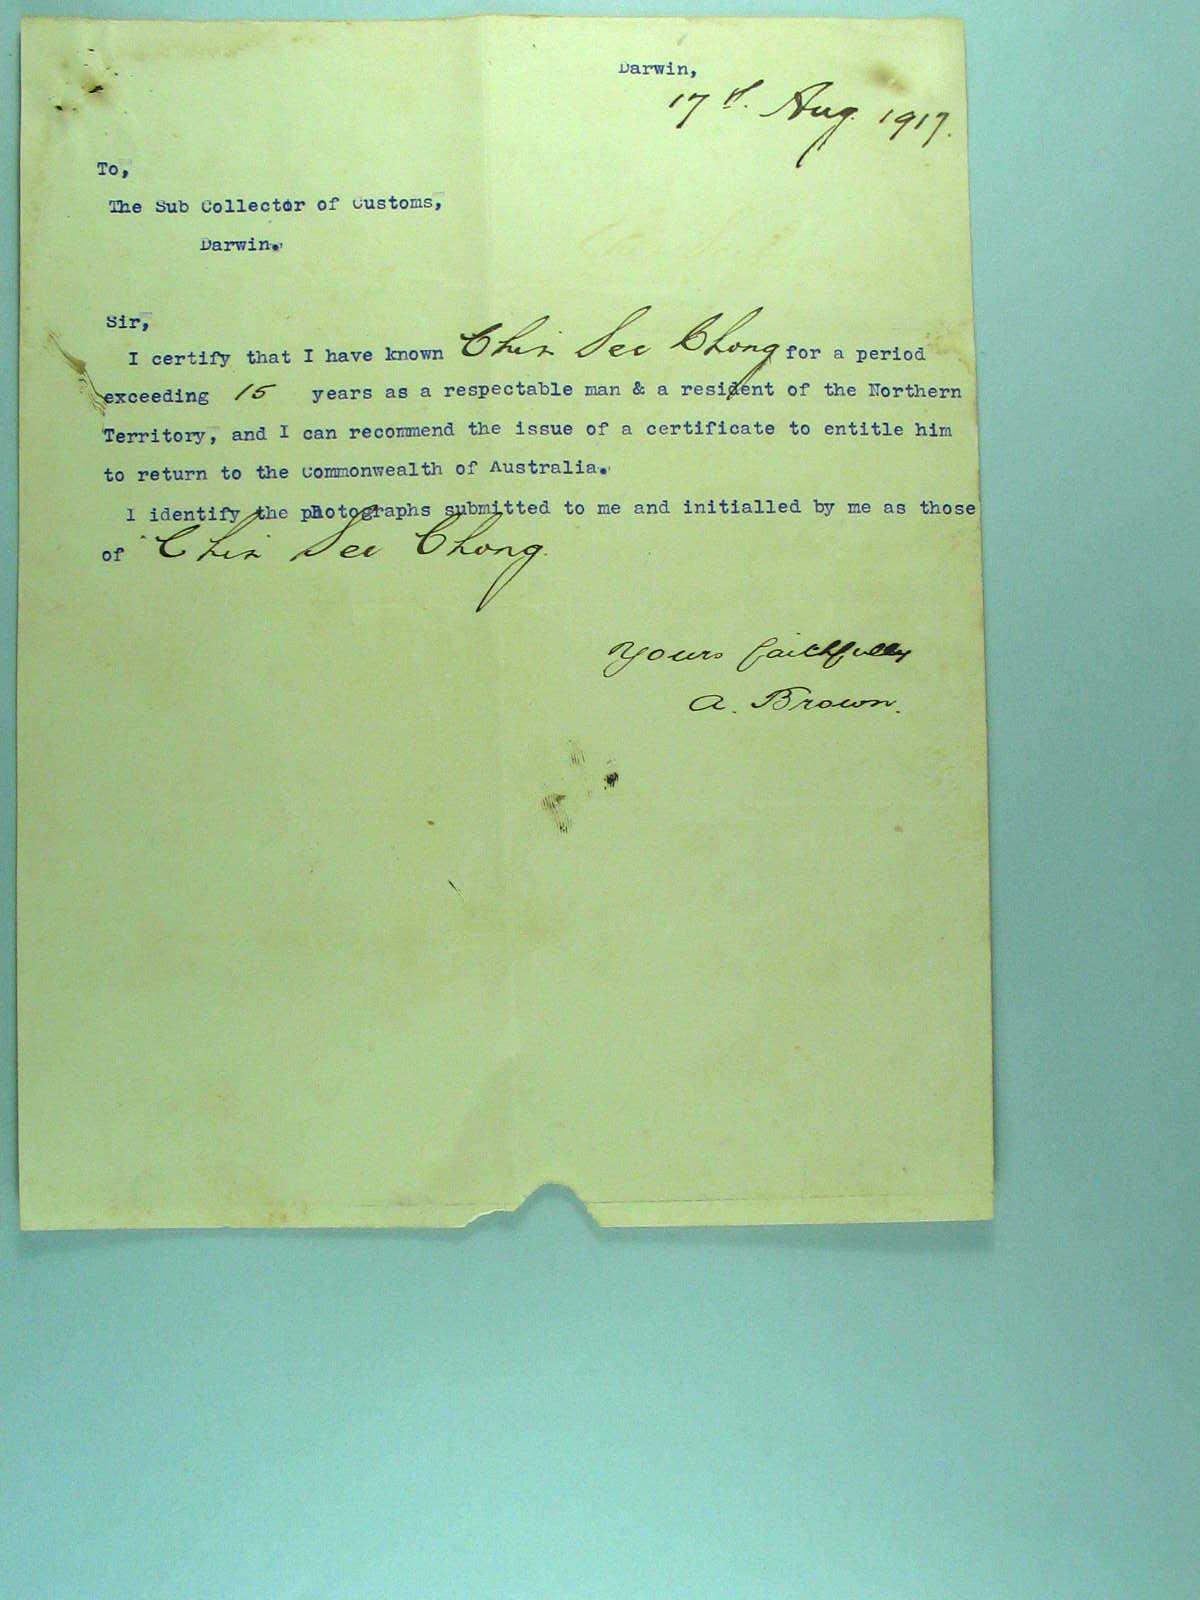 Darwin,
17th. Aug. 1917.
To,
The Sub Collector of Customs,
Darwin.
Sir,
I certify that I have known Chin See Chong for a period
exceeding 15 years as a respectable man & a resident of the Northern
Territory, and I can recommend the issue of a certificate to entitle him
to return to the Commonwealth of Australia.
I identify the photographs submitted to me and initialled by me as those
of Chin See Chong.
Yours faithfully
A. Brown.